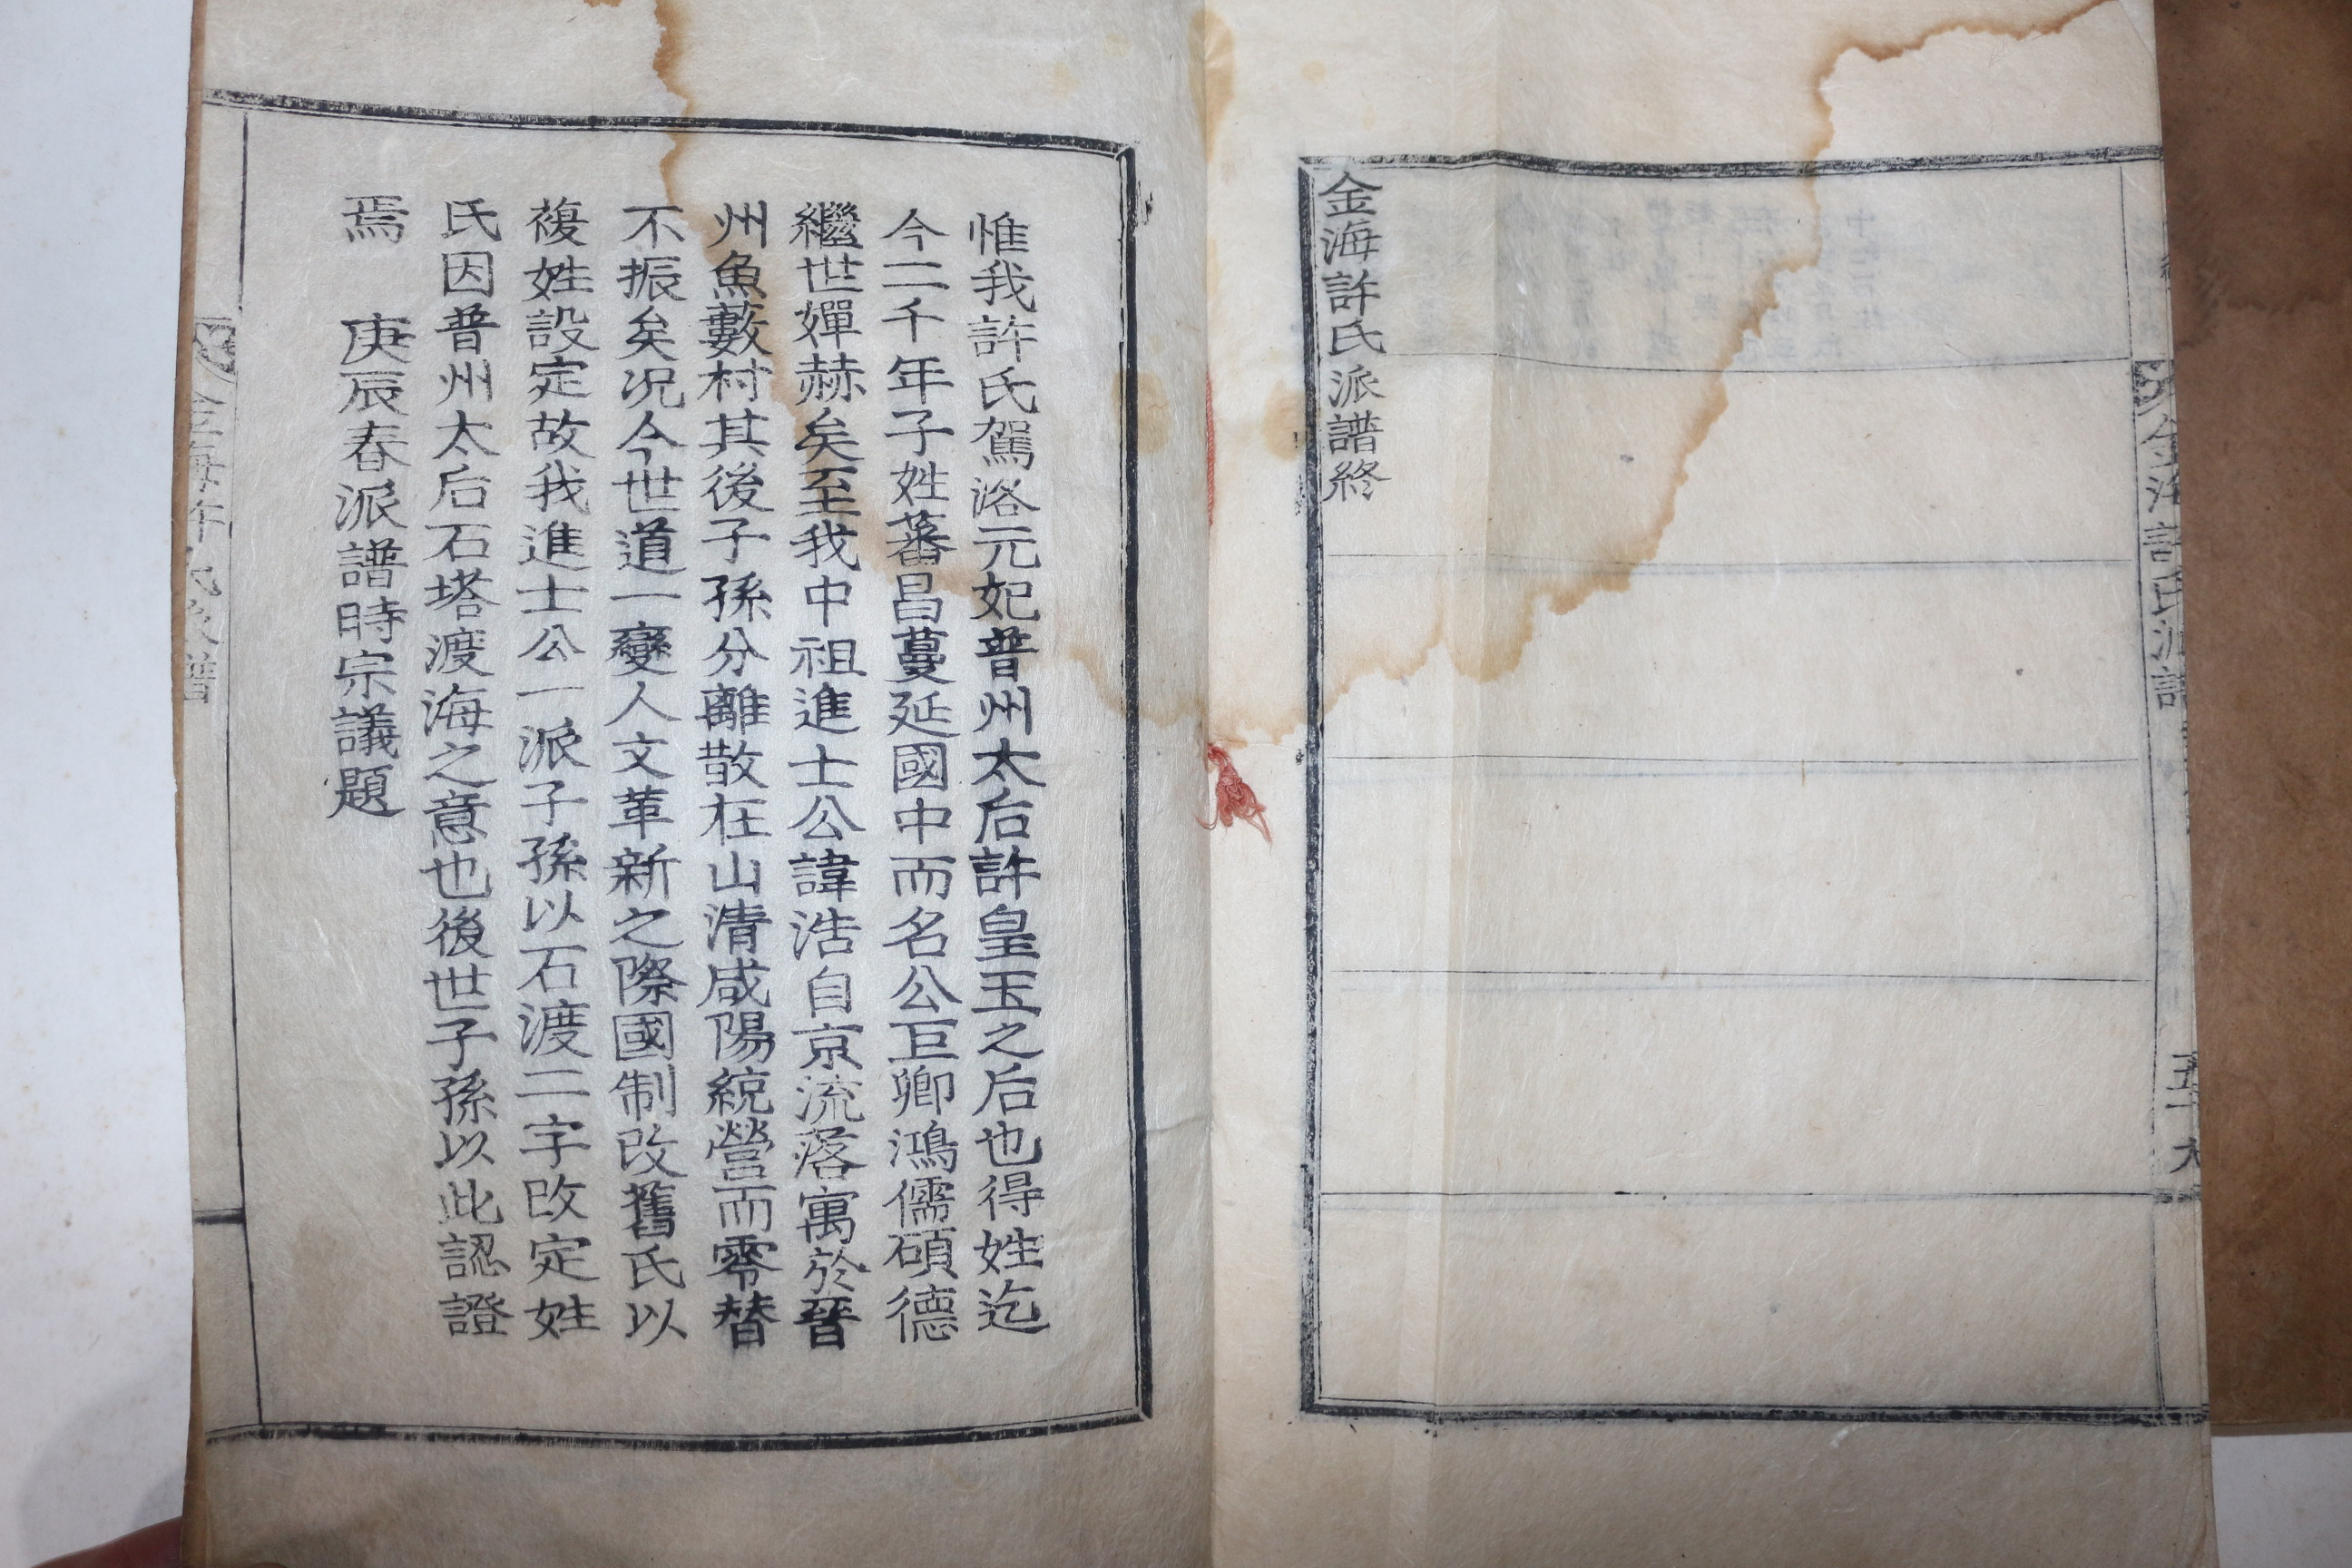 金海許氏派譜
五十九
金海許氏派譜終
惟我許氏駕洛元妃普州太后許皇玉之后也得姓迄
今二千年子姓蕃昌蔓延國中而名公巨卿鴻儒碩德
繼世嬋赫矣至我中祖進士公諱浩自京流落寓於晉
州魚藪村其後子孫分離散在山清咸陽統營而零替
不振矣况今世道一變人文革新之際國制改舊氏以
複姓設定故我進士公一派子孫以石渡二字改定姓
氏因普州太后石塔渡海之意也後世子孫以此認證
焉　庚辰春派譜時宗議題
金海許氏派譜